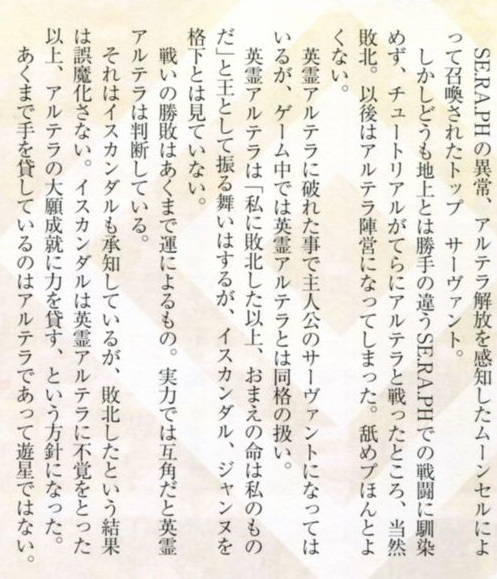 SE.RA.PHの異常、アルテラ解放を感知したムーンセルによ
って召喚されたトップ　サーヴァント。
しかしどうも地上とは勝手の違うSE.RA.PHでの戦闘に馴染
めず、チュートリアルがてらにアルテラと戦ったところ、当然
敗北。以後はアルテラ陣営になってしまった。舐めプほんとよ
くない。
英霊アルテラに破れた事で主人公のサーヴァントになっては
いるが、ゲーム中では英霊アルテラとは同格の扱い。
英霊アルテラは「私に敗北した以上、おまえの命は私のもの
だ」と王として振る舞いはするが、イスカンダル、ジャンヌを
格下とは見ていない。
戦いの勝敗はあくまで運によるもの。実力では互角だと英霊
アルテラは判断している。
それはイスカンダルも承知しているが、敗北したという結果
は誤魔化さない。イスカンダルは英霊アルテラに不覚をとった
以上、アルテラの大願成就に力を貸す、という方針になった。
あくまで手を貸しているのはアルテラであって遊星ではない。